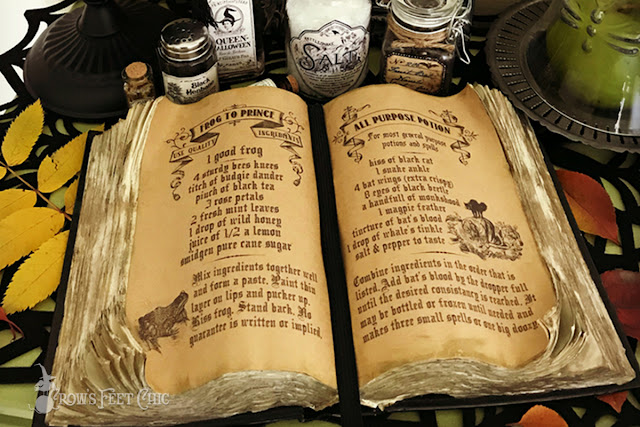 QUEEN
HALLOWEEN
Black
SALT
FROG TO PRINCE
USE QUALITY INGREDIENTS
1 good frog
4 sturdy bees knees
titch of budgie dander
pinch of black tea
3 rose petals
2 fresh mint leaves
1 drop of wild honey
juice of 1/2 a lemon
smidgen pure cane sugar
Mix ingredients together well
and form a paste. Paint thin
layer on lips and pucker up.
Kiss frog. Stand back. No
guarantee is written or implied.
ALL PURPOSE POTION
For most general purpose
potions and spells
hiss of black rat
1 snake ankle
4 bat wings (extra crispy)
8 eyes of black beetle
a handfull of monkshood
1 magpie feather
tincture of bat's blood
1 drop of whale's tinkle
salt & pepper to taste
Combine ingredients in the order that is
listed. Add bat's blood by the dropper full
until the desired consistancy is reached. It
may be bottled or frozen until needed and
makes three small spells or one big doozy.
CROWS FEET CHIC